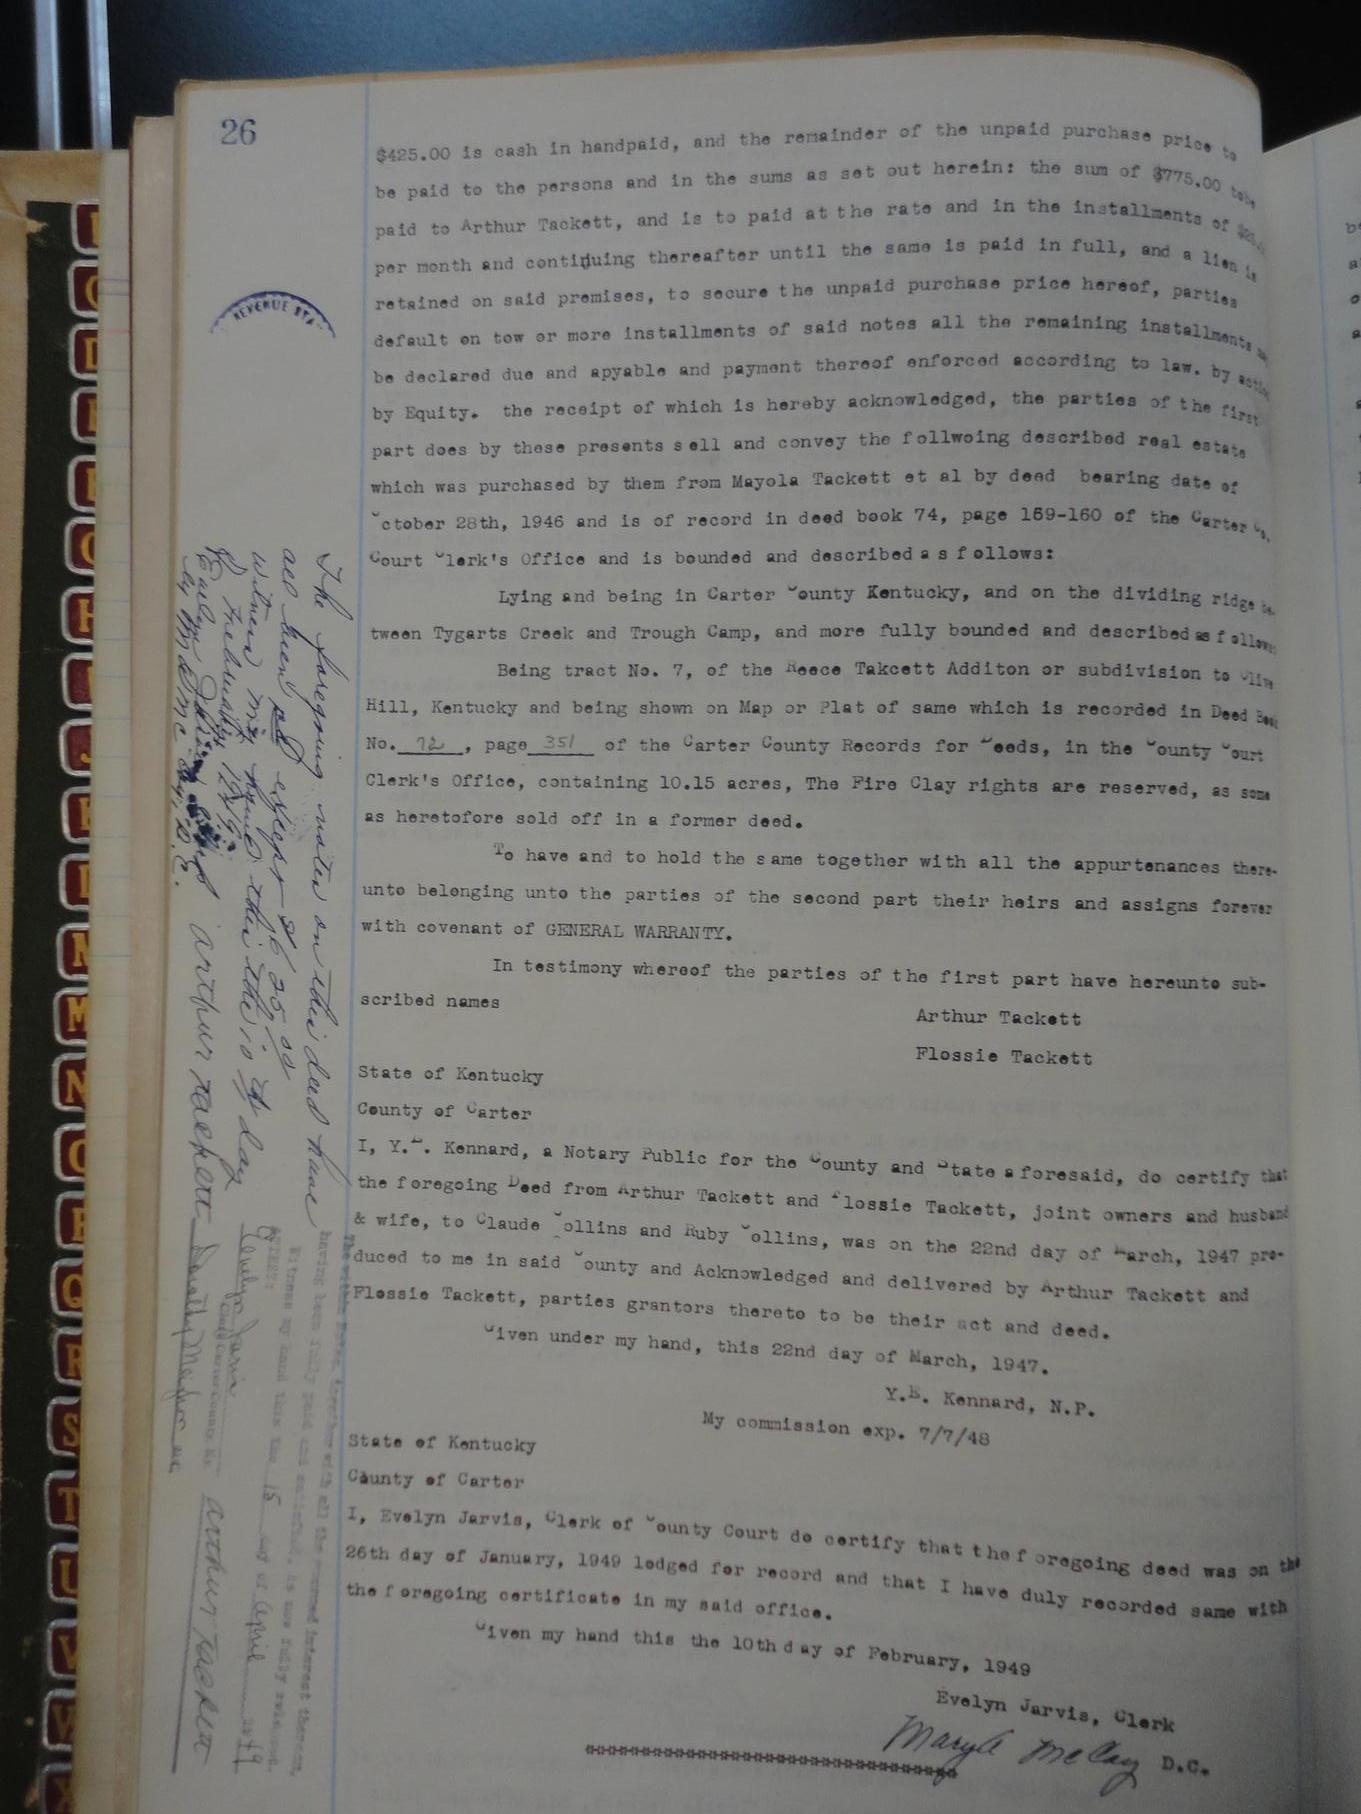 26
$425.00 is cash in handpaid, and the remainder of the unpaid purchase price to
be paid to the persons and in the sums as set out herein: the sum of $775.00 tobe
paid to Arthur Tackett, and is to paid at the rate and in the installments of
per month and continuing thereafter until the same is paid in full, and a lien is
retained on said premises, to secure the unpaid purchase price hereof, parties
default on tow or more installments of said notes all the remaining installments
be declared due and apyable and payment thereof enforced according to law. by
by Equity. the receipt of which is hereby acknowledged, the parties of the first
part does by these presents sell and convey the follwoing described real estate
which was purchased by them from Mayola Tackett et al by deed bearing date of
October 28th, 1946 and is of record in deed book 74, page 159-160 of the Carter Co.
Court Clerk's Office and is bounded and described as follows:
Lying and being in Carter County Kentucky, and on the dividing ridge be-
tween Tygarts Creek and Trough Camp, and more fully bounded and described as follows
Being tract No. 7, of the Reece Takcett Additon or subdivision to Olive
Hill, Kentucky and being shown on Map or Plat of same which is recorded in Deed Book
No. 72, page 351 of the Carter County Records for Deeds, in the County Court
Clerk's Office, containing 10.15 acres, The Fire Clay rights are reserved, as some
as heretofore sold off in a former deed.
To have and to hold the same together with all the appurtenances there-
unto belonging unto the parties of the second part their heirs and assigns forever
with covenant of GENERAL WARRANTY.
In testimony whereof the parties of the first part have hereunto sub-
scribed names
Arthur Tackett
Flossie Tackett
State of Kentucky
County of Carter
I, Y.E. Kennard, a Notary Public for the County and State aforesaid, do certify that
the foregoing Deed from Arthur Tackett and Flossie Tackett, joint owners and husband
& wife, to Claude Collins and Ruby Collins, was on the 22nd day of March, 1947 pro-
duced to me in said County and Acknowledged and delivered by Arthur Tackett and
Flossie Tackett, parties grantors thereto to be their act and deed.
Given under my hand, this 22nd day of March, 1947.
Y.E. Kennard, N.P.
My commission exp. 7/7/48
State of Kentucky
County of Carter
I, Evelyn Jarvis, Clerk of County Court do certify that the foregoing deed was on the
26th day of January, 1949 lodged for record and that I have duly recorded same with
the foregoing certificate in my said office.
Given my hand this the 10th day of February, 1949
Evelyn Jarvis, Clerk
McCoy D.C.
REVENUE STA
The foregoing notes on this deed have
all been pd except
witness my hand this the 10 day
of February 1949.
Arthur Tackett
having been fully paid and satisfied, is now fully released.
Witness my hand this the 15 day of April 1949
ATTEST:
Evelyn Jarvis
Clerk Carter County Ky.
Arthur Tackett
C
D
E
F
G
H
I
J
K
L
M
M
N
O
P
Q
R
S
T
U
V
W
X